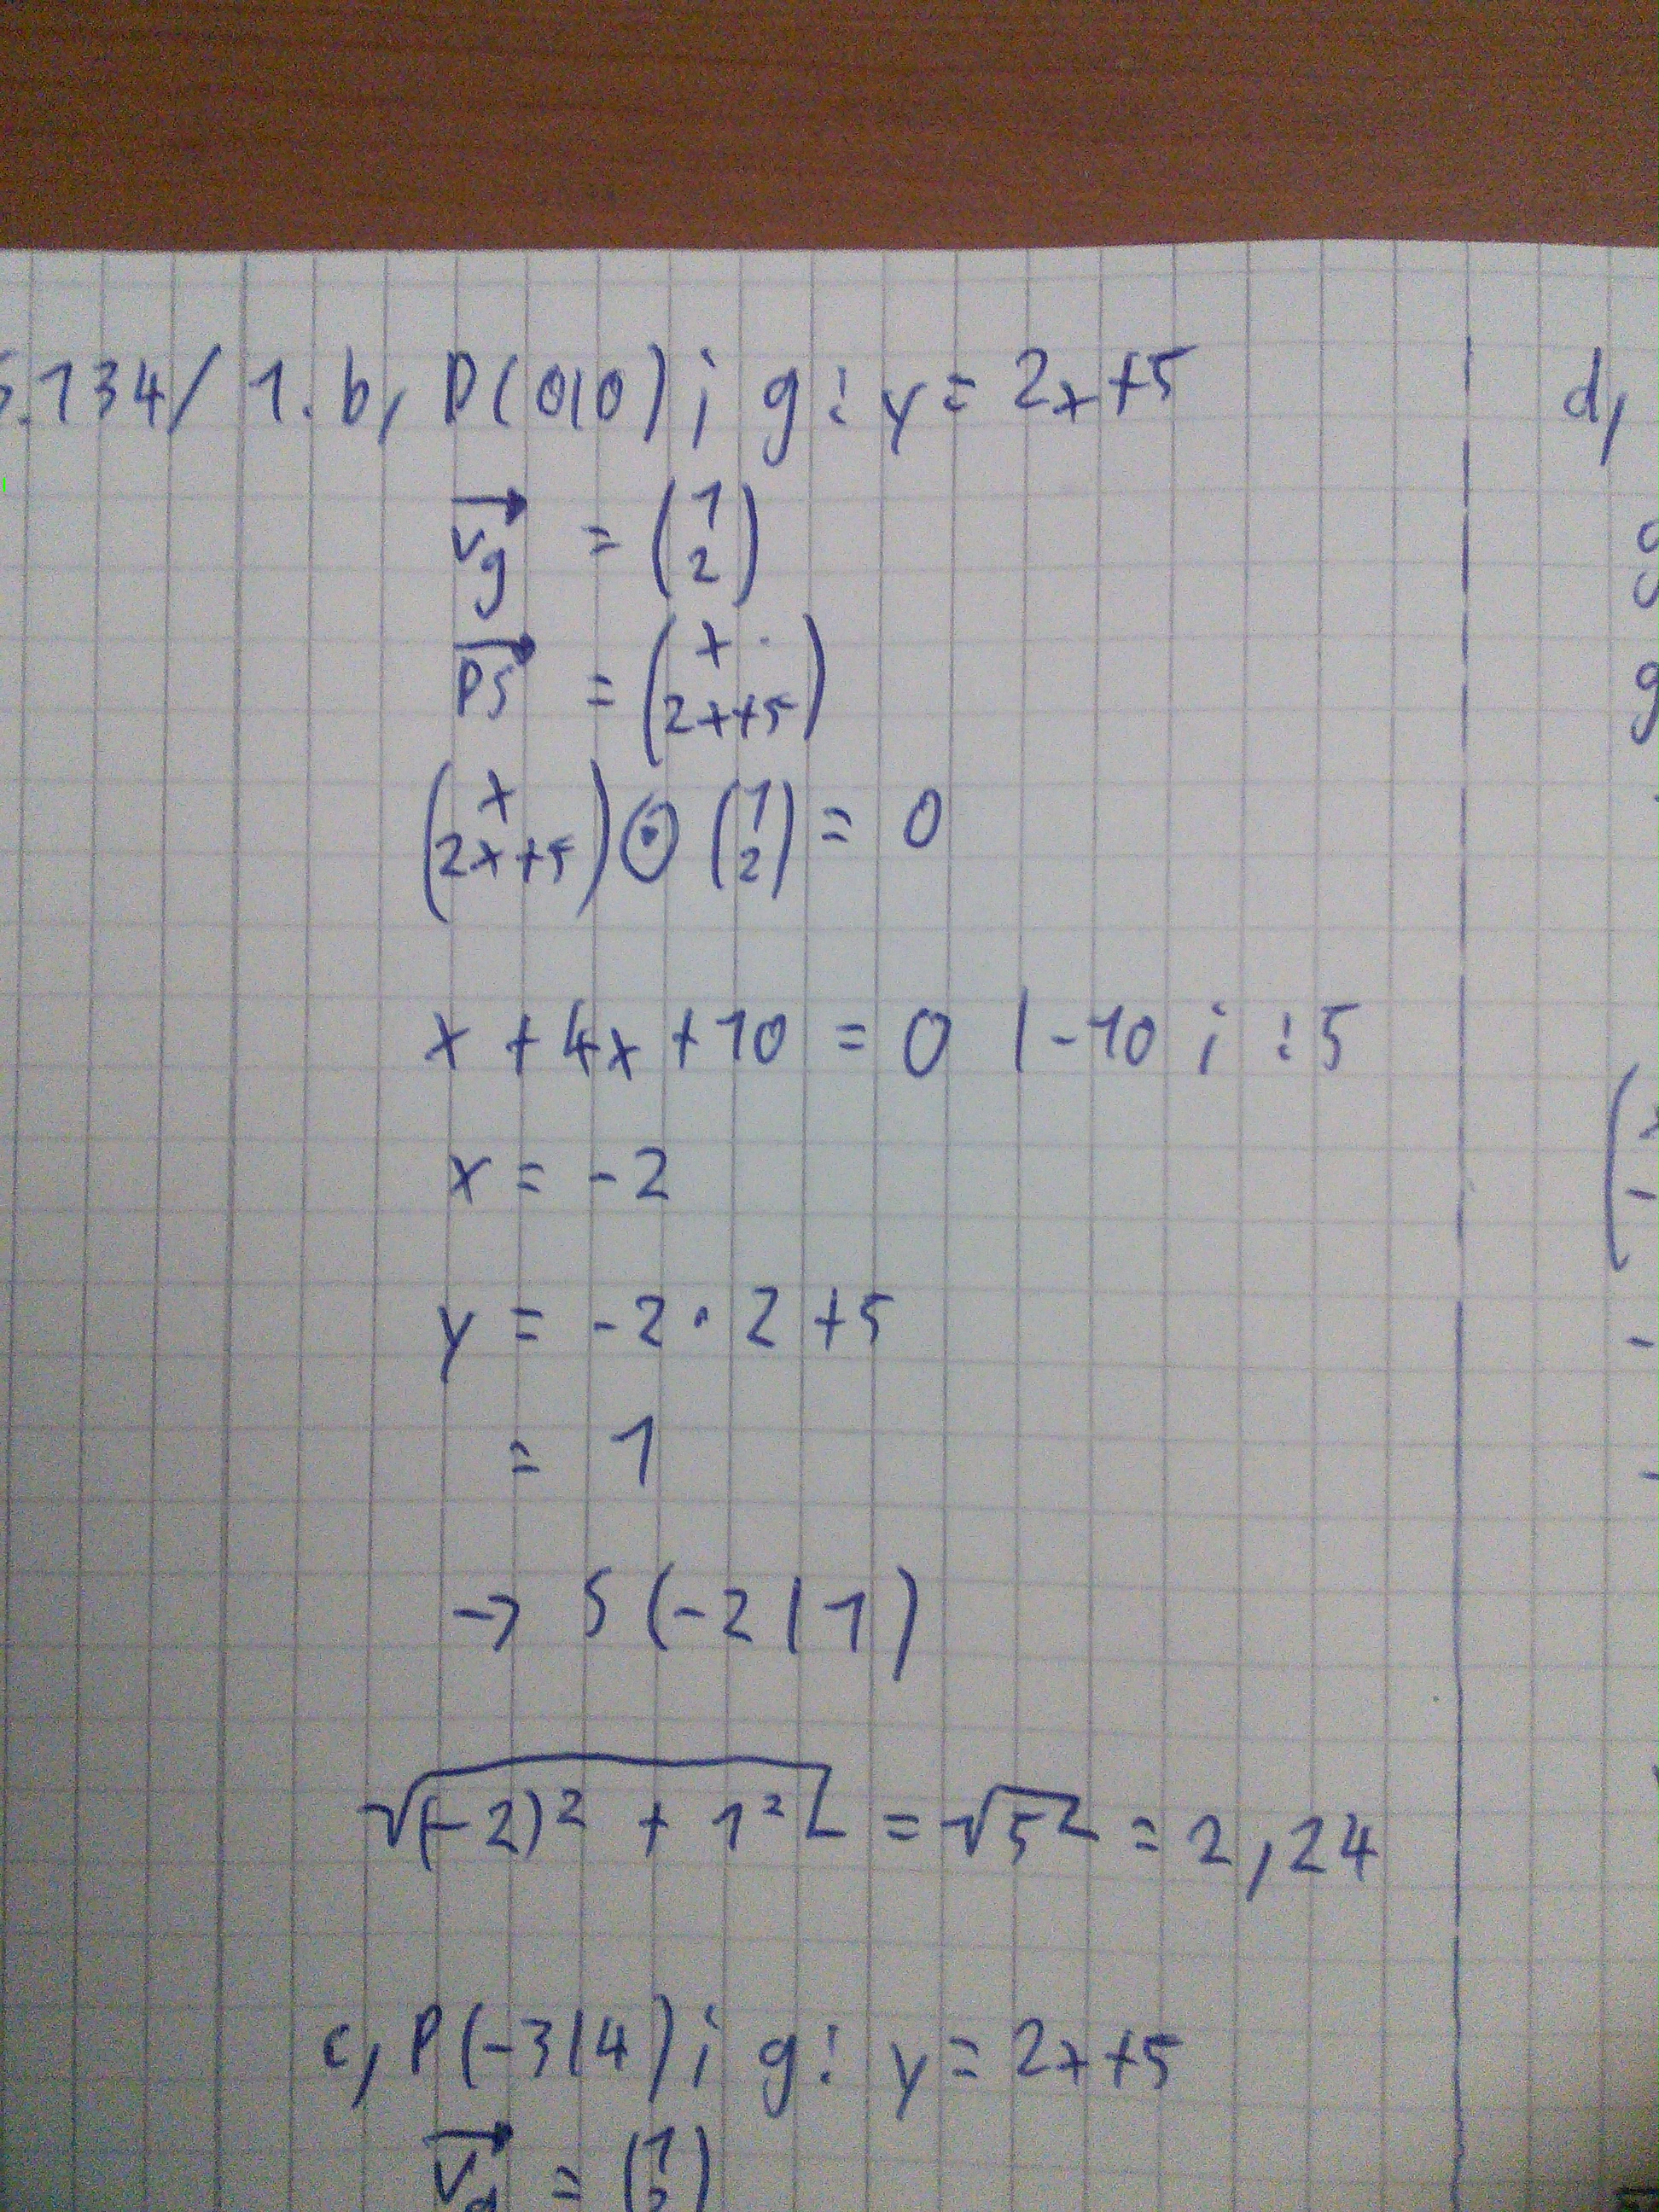 S.134/ 1. b, P(0|0); g: y = 2x+5
vg = (1 2)
PS = (x 2x+5)
(x 2x+5) ⊙ (1 2) = 0
x + 4x + 10 = 0 |-10 ; :5
x = -2
y = -2 · 2 + 5
= 1
→ S(-2|1)
√(-2)² + 1² = √5 = 2,24
c, P(-3|4); g: y = 2x+5
vg = (1 2)
d,
g
g